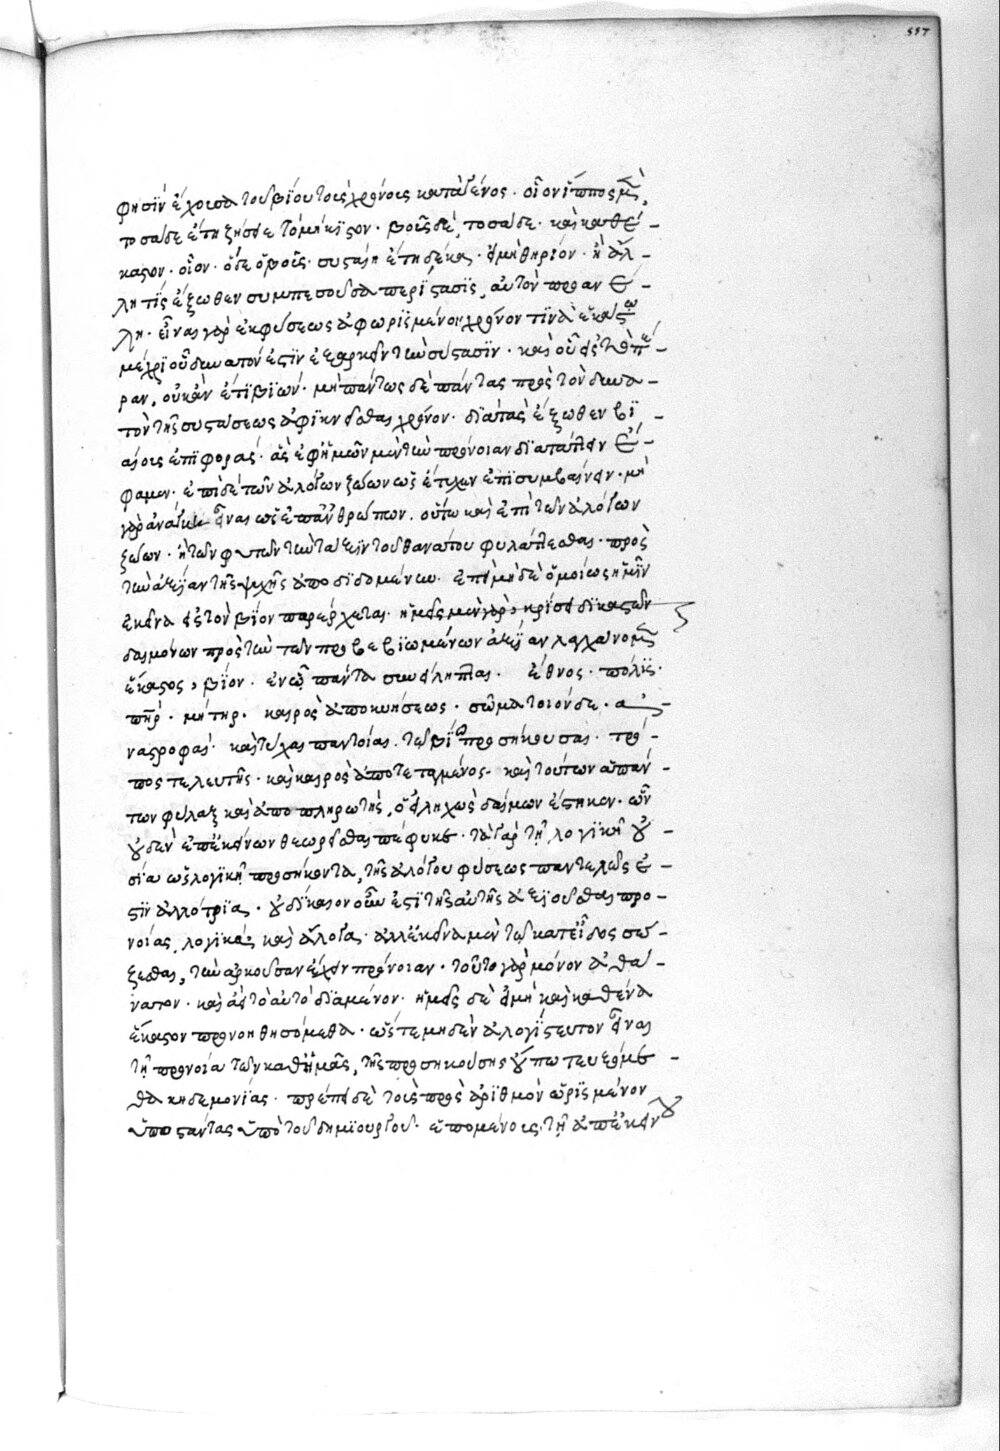 557
φησὶν ἔχουσα τοῦ βίου τοὺς χρόνους κατὰ γένος · οἷον ἵππος μὲν,
τοσάδε ἔτη ζήσει τὸ μήκιστον · βοῦς δὲ, τοσάδε · καὶ καθέ-
καστον · οἷον · ὅδε ὁ βοῦς · συσταίη ἔτη δέκα · εἰ μὴ θηρίον · ἢ ἄλ-
λη τίς ἔξωθεν συμπεσοῦσα περίστασις, αὐτὸν προανέ-
λῃ · εἶναι γὰρ ἐκ φύσεως ἀφωρισμένον χρόνον τινὰ ἑκάστῳ
μέχρι οὗ δυνατόν ἐστιν ἐξαρκεῖν τὴν σύστασιν · καὶ οὗ εἰς τὸ πέ-
ραν, οὐκ ἂν ἔτι βιῴη · μὴ πάντως δὲ πάντας πρὸς τὸν δυνα-
τὸν τῆς συστάσεως ἀφικνεῖσθαι χρόνον · διά τας ἔξωθεν βι-
αίους ἐπιφοράς · ἃς ἐφ' ἡμῶν μὲν τὴν πρόνοιαν διατάττειν ἔ-
φαμεν · ἐπὶ δὲ τῶν ἀλόγων ζώων ὡς ἔτυχεν ἐπισυμβαίνειν · μὴ
γὰρ ἀνάγκη εἶναι ὡς ἐπ' ἀνθρώπων, οὕτω καὶ ἐπὶ τῶν ἀλόγων
ζώων · ἢ τῶν φυτῶν τὴν τάξιν τοῦ θανάτου φυλάττεσθαι · πρὸς
τὴν ἀξίαν τῆς ψυχῆς ἀποδιδομένην · ἐπεὶ μηδὲ ὁμοίως ἡμῖν
ἐκεῖνα εἰς τὸν βίον παρέρχεται · ἡμεῖς μὲν γὰρ, κρίσει δικαστῶν
δαιμόνων πρὸς τὴν τῶν προβεβιωμένων ἀξίαν λαγχάνομεν
ἕκαστος, βίον · ἐν ᾧ πάντα συνείληπται · ἔθνος · πόλις ·
πατήρ · μήτηρ · καιρὸς ἀποκυήσεως · σῶμα τοιόνδε · ἀ-
ναστροφαί · καὶ τύχαι παντοῖαι, τῷ βίῳ προσήκουσαι · τρό-
πος τελευτῆς · καὶ καιρὸς ἀποτεταμένος · καὶ τούτων ἁπάν-
των φύλαξ καὶ ἀποπληρωτὴς, ὁ εἰληχὼς δαίμων ἕστηκεν · ὧν
οὐδὲν ἐπ' ἐκείνων θεωρεῖσθαι πέφυκε · τὰ γὰρ τῇ λογικῇ οὐ-
σίᾳ ὡς λογικῇ προσήκοντα, τῆς ἀλόγου φύσεως παντελῶς ἐ-
στὶν ἀλλότρια · οὐ δίκαιον οὖν ἐστὶ τῆς αὐτῆς ἀξιοῦσθαι προ-
νοίας, λογικὰ καὶ ἄλογα · ἀλλ' ἐκεῖνα μὲν τῷ κατ' εἶδος σώ-
ζεσθαι, τὴν ἀρκοῦσαν ἔχειν πρόνοιαν · τοῦτο γὰρ μόνον ἀθά-
νατον · καὶ ἀεὶ τὸ αὐτὸ διαμένον · ἡμεῖς δὲ εἰ μὴ καὶ καθ' ἕνα
ἕκαστον προνοηθησόμεθα · ὥστε μηδὲν ἀλόγιστευτον εἶναι
τῇ προνοίᾳ τῶν καθ' ἡμᾶς, τῆς προσηκούσης οὔπω τευξόμε-
θα κηδεμονίας · πρέπει δὲ τοῖς πρὸς ἀριθμὸν ὡρισμένον
ὑποστάντας ὑπὸ τοῦ δημιουργοῦ · ἑπομένοις τῇ ἀπ' ἐκείνου